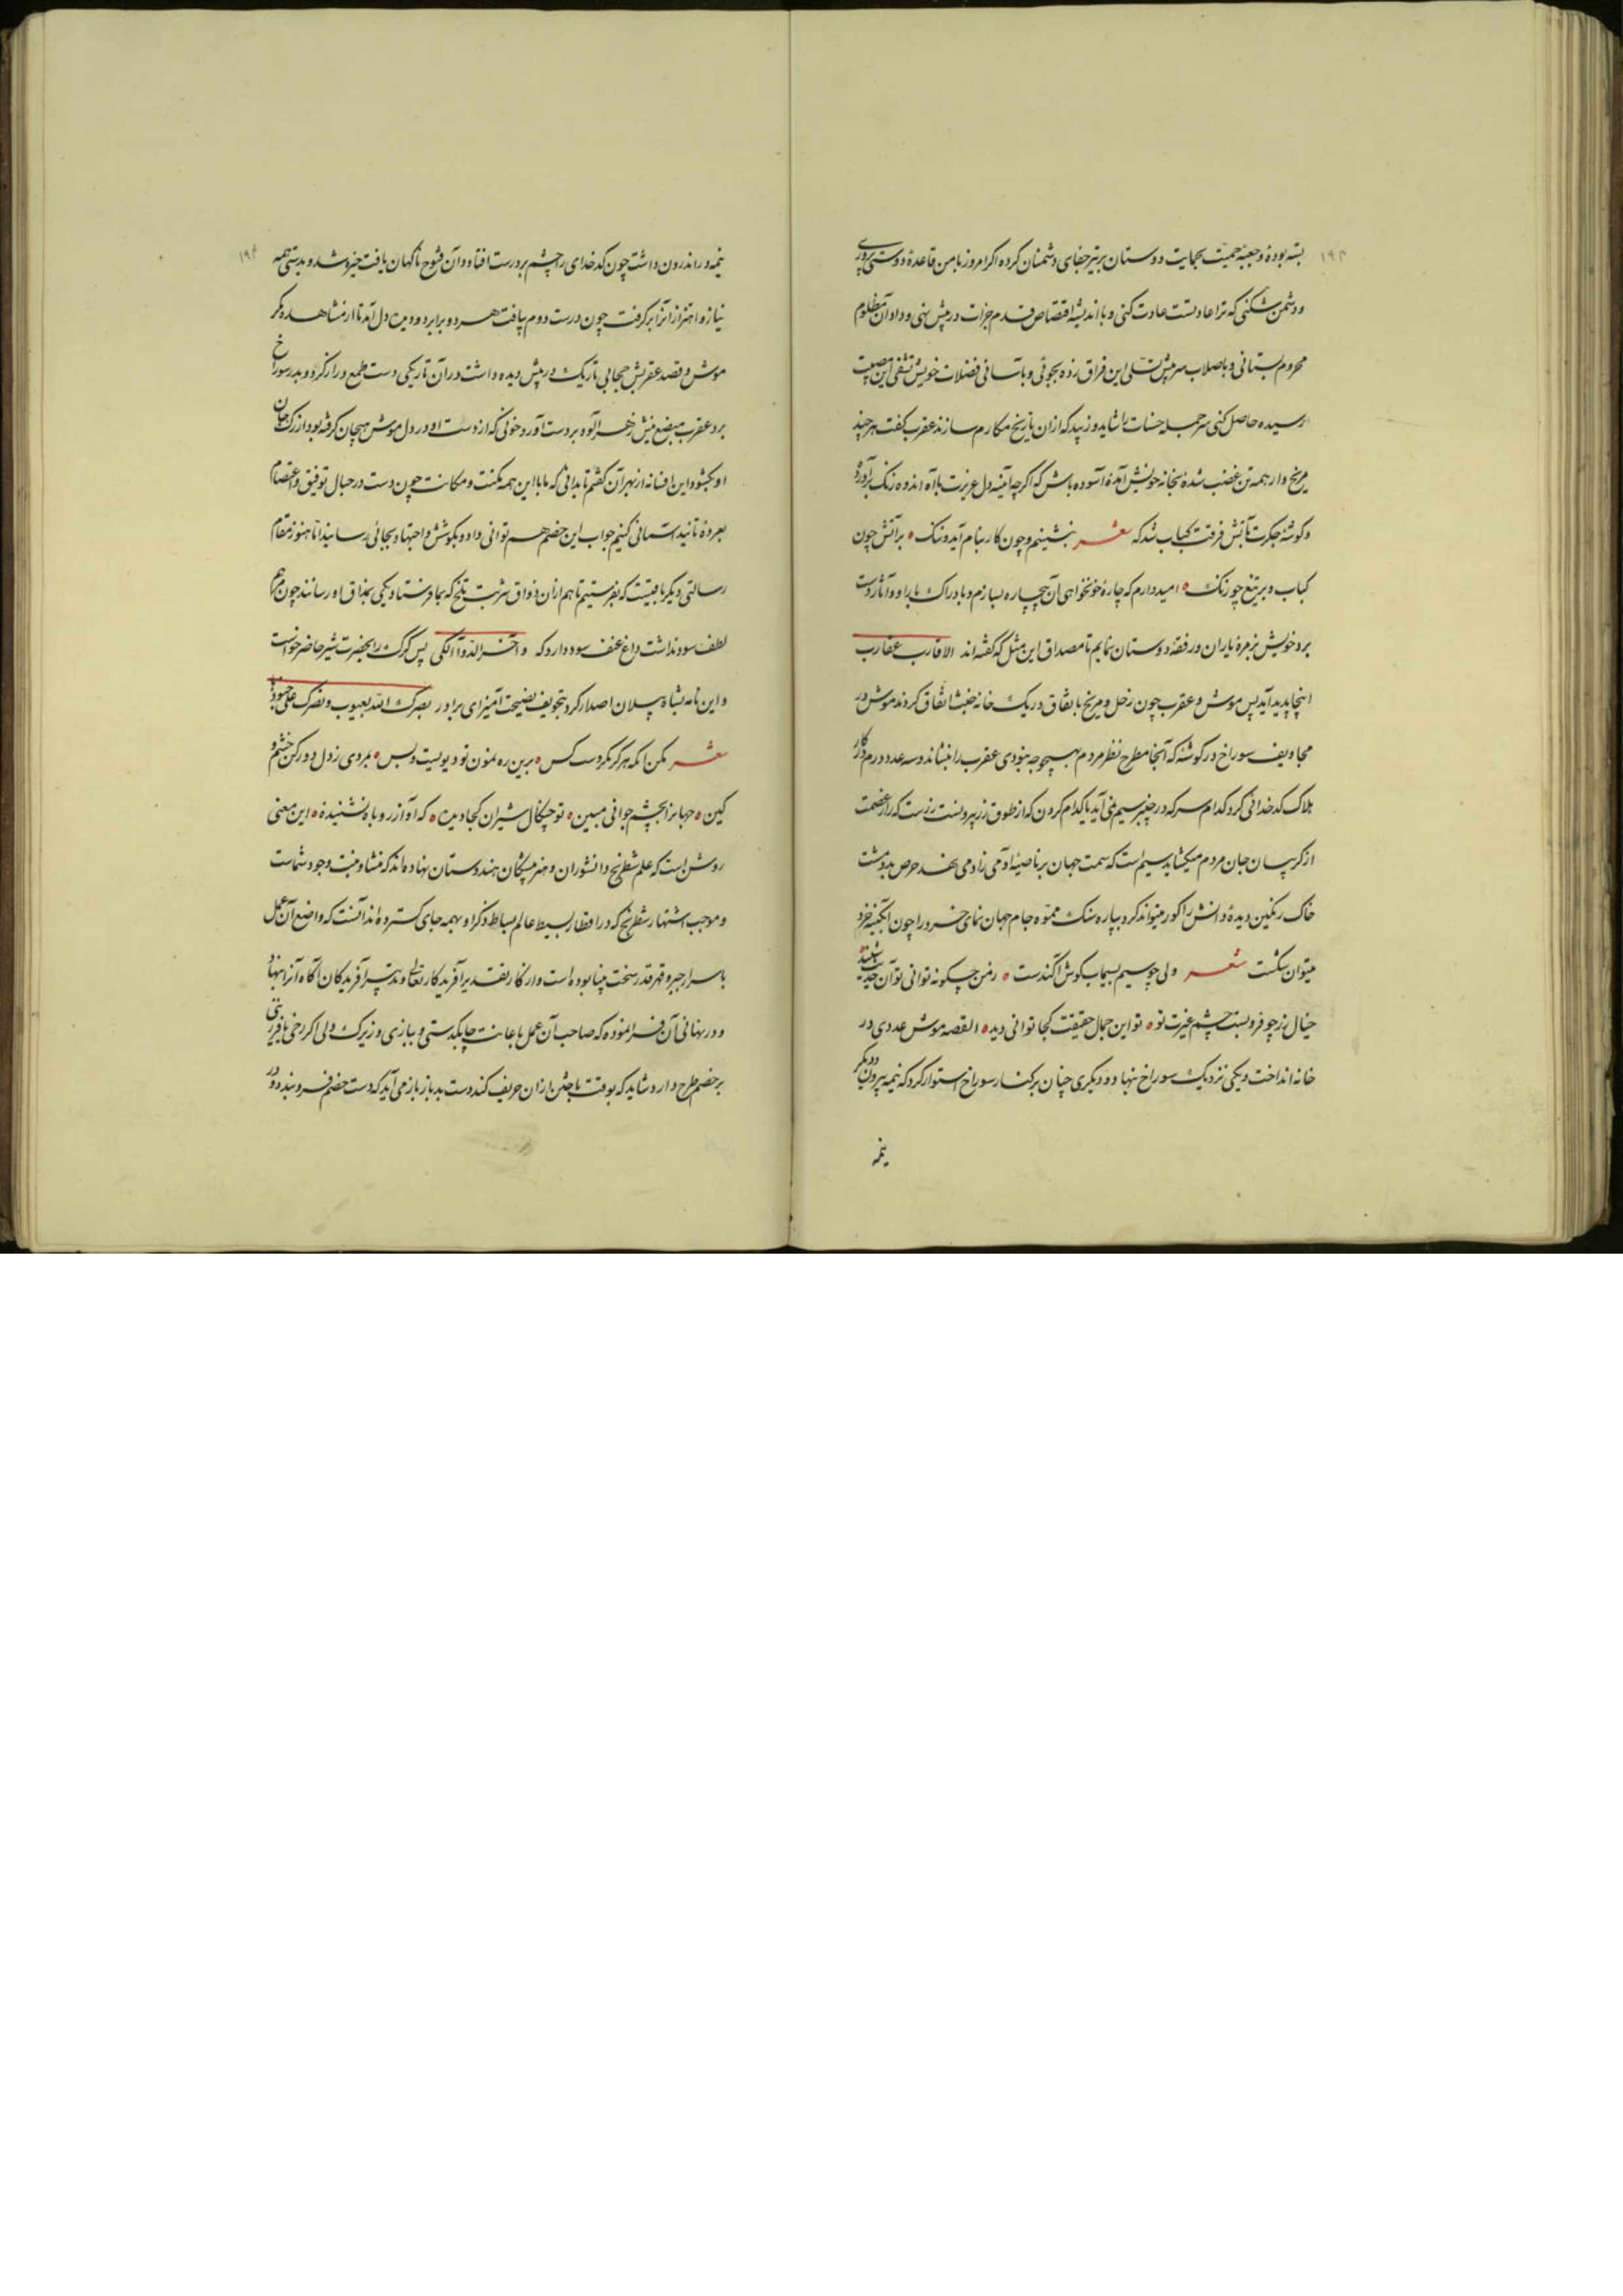 بسته بودهٔ و جعبهٔ حمیّت بحمایت دوستان بر تیر جفای دشمنان کرده اکر امروز با من قاعدهٔ دوستی پروری
و دشمن شکنی که ترا عادتست عادت کنی و باندیشه اقتصاص قدم جرات در پیش نهی و داد آن مظلوم
محروم بستانی و تسلی این فراق زده بجوئی و فضلات خویش تشفی این مصیبت
رسیده حاصل کنی سر جمله حسنات را شاید و زیبد که ازان تاریخ مکارم سازند عقرب کفت هر چند
مریخ وار همه تن غضب شدهٔ بخانه خویش آمدهٔ آسوده باش که اکر چه آینه دل عزیزت با آه اندوه زنک برآورد
و کوشه جکرت بآتش فرقت کباب شد که شعر بنشینم و چون کار بنام آید و ننک بر آتش چون
کباب و بر تیغ چو زنک امید دارم که چارهٔ خونخواهی آن بیچاره بسازم و بادراک ثار او و آثار دست
برد خویش بزمرهٔ یاران و رفقهٔ دوستان نمایم تا مصداق این مثل که کفته اند الاقارب عقارب
اینجا پدید آید پس موش و عقرب چون زحل و مریخ باتفاق در یک خانه خبث اتفاق کردند موش در
مجاویف سوراخ در کوشهٔ که آنجا مطرح نظر مردم بهیچوجه نبودی عقرب را بنشاند و سه عدد درم در کار
هلاک کدخدائی کرد کدام سر که در چنبر سیم نمی آید یا کدام کردن که از طوق زر بیرونست زرست که راز عصمت
از کریبان جان مردم میکشاید سیم است که سمت جهان بر ناصیهٔ آدمی زاد می نهد حرص بدو مشت
خاک رنکین دیدهٔ دانش را کور میتواند کرد بپاره سنک مموّه جام جهان نمای خسرو را چون آبکینه خرد
میتوان شکست شعر ولی چو سیم بسیماب کوش آکندست ز من چکونه توانی تو آن حدیث شنید
خیال زر چو فرو بست چشم غیرت تو تو این جمال حقیقت کجا توانی دید القصه موش عددی در
خانه انداخت و یکی نزدیک سوراخ نهاد و دیکری چنان بر کنار سوراخ استوار کرد که نیمه بیرون و دیکر
نیمه
نیمه در اندرون داشت چون کدخدای را چشم بر درست افتاد و آن فتوح ناکهان یافت خیره شد و بدستی همه
نیاز و اهتزاز آنرا بر کرفت چون درست دوم بیافت هر دو برابر دو دیده دل آمد تا از مشاهده مکر
موش و قصد عقربش حجابی تاریک در پیش دیده داشت در آن تاریکی دست طمع دراز کرد و بدر سوراخ
برد عقرب مبضع نیش زهر آلود بر دست او زد خونی که از دست او در دل موش هیجان کرفته بود از رک جان
او بکشود این افسانه از بهر آن کفتم تا بدانی که ما با این همه مکنت و مکانت چون دست در حبال توفیق و اعتصام
بعروهٔ تایید آسمانی کنیم جواب این خصم هم توانی داد و بکوشش و اجتهاد بجائی رسانید اما هنوز مقام
رسالتی دیکر باقیست که بفرستیم تا هم ازان ذواق شربت تلخ که بما فرستاد یکی بمذاق او رسانند چون مرهم
لطف سود نداشت داغ عنف سود دارد که و آخر الدوآء الکی پس کرک را بحضرت شیر حاضر خواست
و این نامه بشاه پیلان اصدار کرد بتخویف نصیحت آمیز ای برادر بصرک الله بعیوب و نصرک علی
شعر مکن آنکه هرکز نکردست کس برین ره نمون تو دیویست و بس بمردی ز دل دور کن خشم و
کین جهانرا بچشم جوانی مبین تو چنکال شیران کجا دیدهٔ که آواز روباه نشنیدهٔ این معنی
روشن است که علم شطرنج دانشوران و هنرپیشکان هندوستان نهاده اند که منشاء و منبت وجود شماست
و موجب اشتهار شطرنج که در اقطار بسیط عالم بساط ذکر او بهمه جای کسترده اند آنست که واضع آن عمل
باسرار جبر و قدر سخت بینا بوده است و از کار تقدیر آفریدکار تعالی و تدبیر آفریدکان آکاه آنرا بنهاد
و در نهانی آن فرا نموده که صاحب آن عمل باعانت چابکدستی و بازی و زیرک دلی اکر رخی یا فرزینی
بر خصم طرح دارد شاید که بوقت باختن ازان حریف کند دست بد باز باز می آید که دست خصم فرو بندد و در